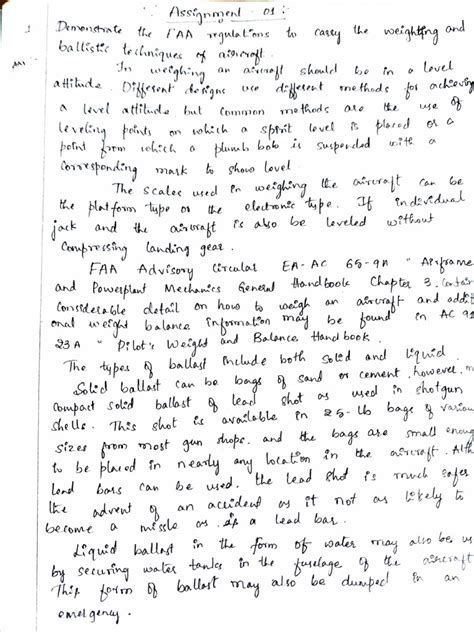 Assignment - 01 :
1 Demonstrate the FAA regulations to carry the weighting and
ballistic techniques of aircraft.
Ans
In weighing an aircraft should be in a level
attitude. Different designs use different methods for achieving
a level attitude but common methods are the use of
leveling points on which a spirit level is placed or a
point from which a plumb bob is suspended with a
corresponding mark to show level.
The scales used in weighing the aircraft can be
the platform type or the electronic type. If individual
jack and the aircraft is also be leveled without
compressing landing gear.
FAA Advisory Circular EA-AC 65-9A " Airframe
and Powerplant Mechanics General Handbook Chapter 3. contain
considerable detail on how to weigh an aircraft and addit
onal weight balance information may be found in AC 91
23A " Pilot's Weight and Balance Handbook.
The types of ballast include both solid and liquid.
Solid ballast can be bags of sand or cement, however, m
compact solid ballast of lead shot as used in shotgun
shells. This shot is available in 25-lb bags of various
sizes from most gun shops. and the bags are small enoug
to be placed in nearly any location in the aircraft. Alth
lead bars can be used. the lead shot is much safer
the advent of an accident as it not as likely to
become a missle as if a lead bar.
Liquid ballast in the form of water may also be us
by securing water tanks in the fuselage of the aircraft
This form of ballast may also be dumped in an
emelgency.